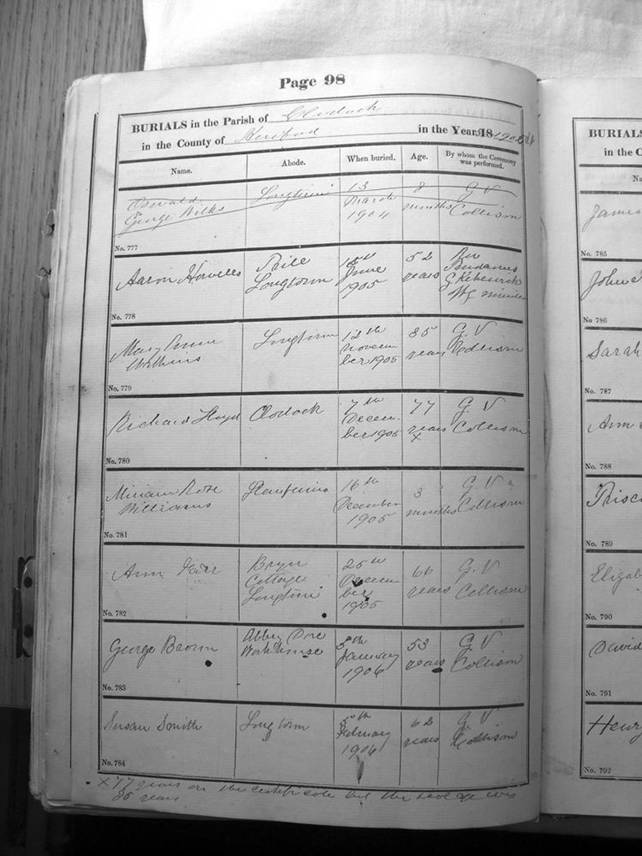 Page 98
BURIALS in the Parish of Clodock
in the County of Hereford in the Year 18 1905
Name. Abode. When buried. Age. By whom the Ceremony was performed.
Oswald
George Wilks
Longtown
13
March
1904
8
months
G. V
Collison
No. 777
Aaron Howells
Longtown
June
1905
52
years
No. 778
Mary Anne
Watkins
Longtown
12th
Novem
ber 1905
85
years
G. V
Collison
No. 779
Richard Lloyd
Clodock
7th
Decem
ber 1905
77
years
x
G. V
Collison
No. 780
Miriam Rose
Williams
16th
December
1905
3
months
G. V
Collison
No. 781
Ann
Bryn
Cottage
Longtown
25th
Decem
ber
1905
66
years
G. V
Collison
No. 782
George Brown
Abbey Dore
Workhouse
January
1906
53
years
G. V
Collison
No. 783
Susan Smith
Longtown
February
1906
62
years
G. V
Collison
No. 784
x 77 years on the certificate but the real age was
85 years
BURIALS
in the C
Na
James
No. 785
John
No. 786
Sarah
No. 787
Ann
No. 788
Prisc
No. 789
Elizab
No. 790
David
No. 791
Henry
No. 792